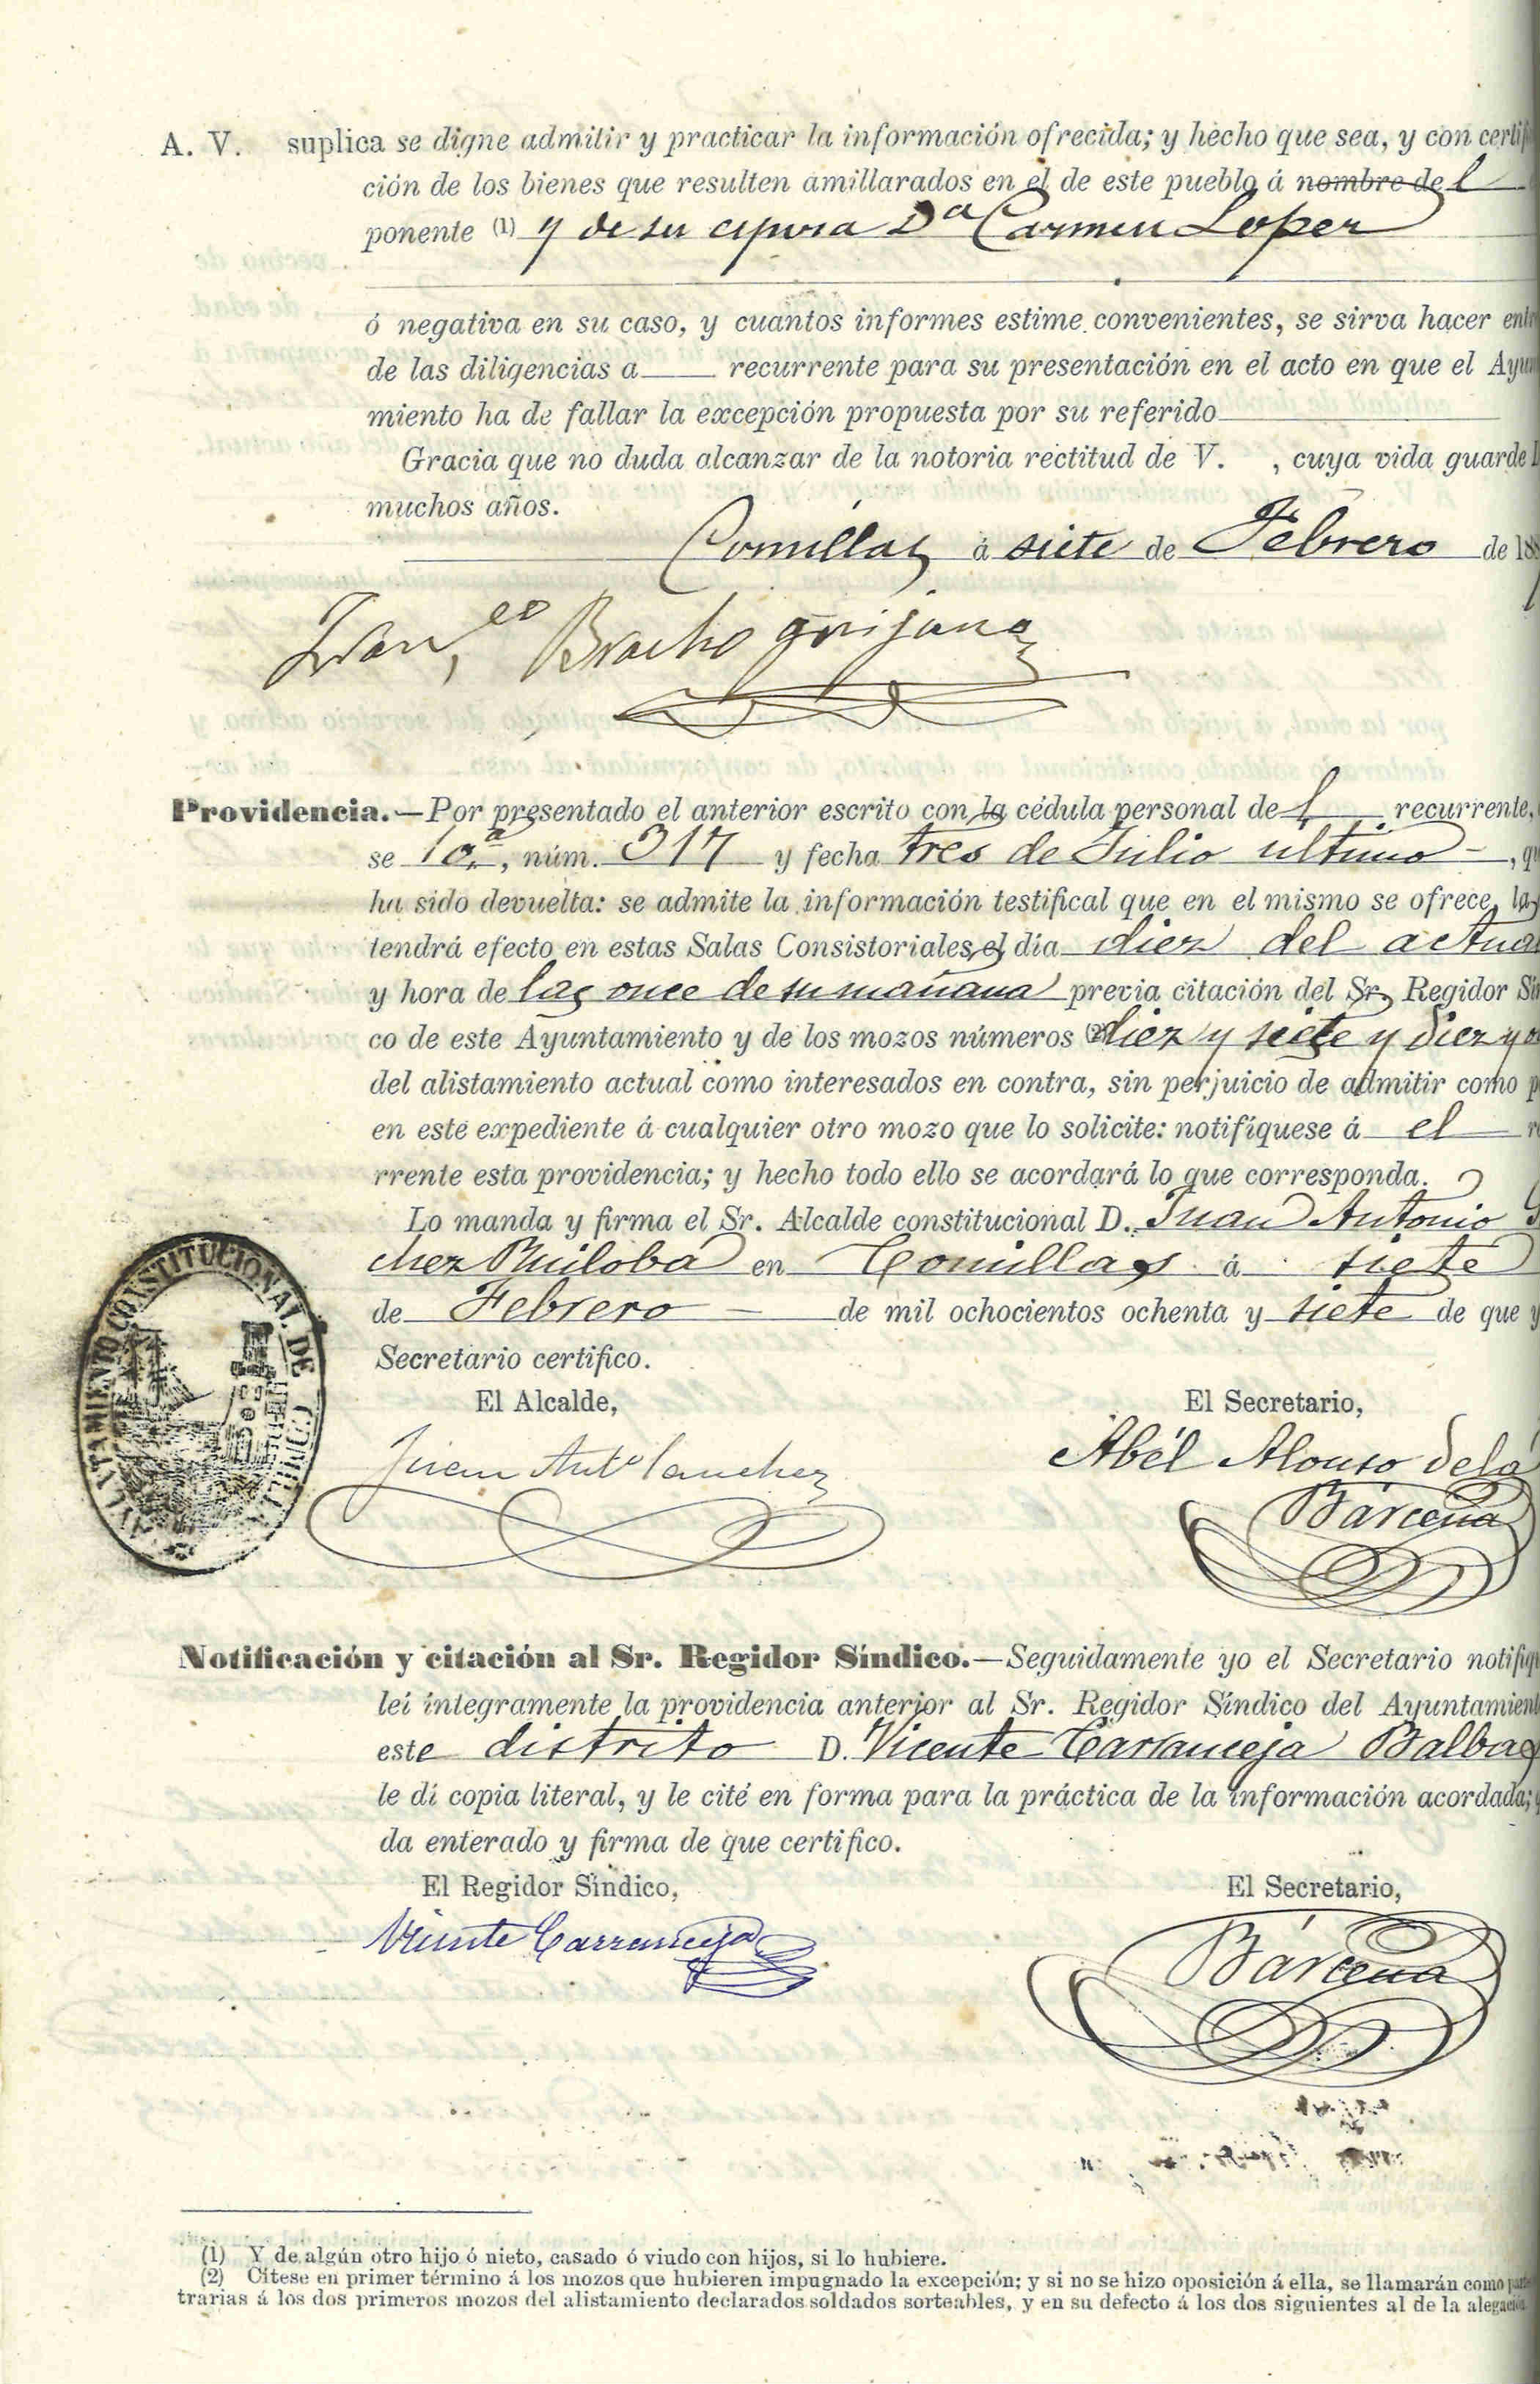 A. V. suplica se digne admitir y practicar la información ofrecida; y hecho que sea, y con certifi
ción de los bienes que resulten amillarados en el de este pueblo á nombre del
ponente (1) y de su esposa Dª Carmen Lopez
ó negativa en su caso, y cuantos informes estime convenientes, se sirva hacer entre
de las diligencias a recurrente para su presentación en el acto en que el Ayun
miento ha de fallar la excepción propuesta por su referido
Gracia que no duda alcanzar de la notoria rectitud de V. , cuya vida guarde D
muchos años.
Comillas á siete de Febrero de 188
Fran,co Bracho Grijana
Providencia.—Por presentado el anterior escrito con la cédula personal del recurrente,
se 10.ª, núm. 317 y fecha tres de Julio último, q
ha sido devuelta: se admite la información testifical que en el mismo se ofrece, la
tendrá efecto en estas Salas Consistoriales el día diez del actua
y hora de las once de su mañana previa citación del Sr. Regidor Sín
co de este Ayuntamiento y de los mozos números (2) diez y siete y diez y o
del alistamiento actual como interesados en contra, sin perjuicio de admitir como p
en este expediente á cualquier otro mozo que lo solicite: notifíquese á el r
rrente esta providencia; y hecho todo ello se acordará lo que corresponda.
Lo manda y firma el Sr. Alcalde constitucional D. Juan Antonio
chez Ruiloba en Comillas á siete
de Febrero — de mil ochocientos ochenta y siete de que y
Secretario certifico.
El Alcalde, El Secretario,
Juan Antº Sanchez Abél Alonso de la
Bárcena
AYUNTAMIENTO CONSTITUCIONAL DE COMILLAS
Notificación y citación al Sr. Regidor Síndico.—Seguidamente yo el Secretario notifiqu
leí íntegramente la providencia anterior al Sr. Regidor Síndico del Ayuntamient
este distrito D. Vicente Carranceja Balbas
le dí copia literal, y le cité en forma para la práctica de la información acordada;
da enterado y firma de que certifico.
El Regidor Síndico, El Secretario,
Vicente Carranceja Bárcena
(1) Y de algún otro hijo ó nieto, casado ó viudo con hijos, si lo hubiere.
(2) Cítese en primer término á los mozos que hubieren impugnado la excepción; y si no se hizo oposición á ella, se llamarán como
trarias á los dos primeros mozos del alistamiento declarados soldados sorteables, y en su defecto á los dos siguientes al de la alegación.